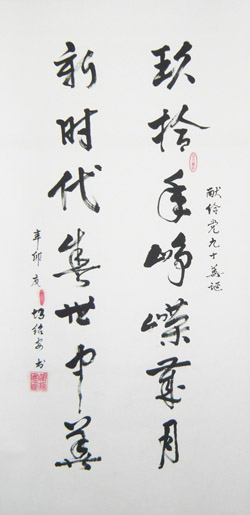 献给党九十华诞
玖拾年峥嵘岁月
新时代盛世中华
辛卯夏
书